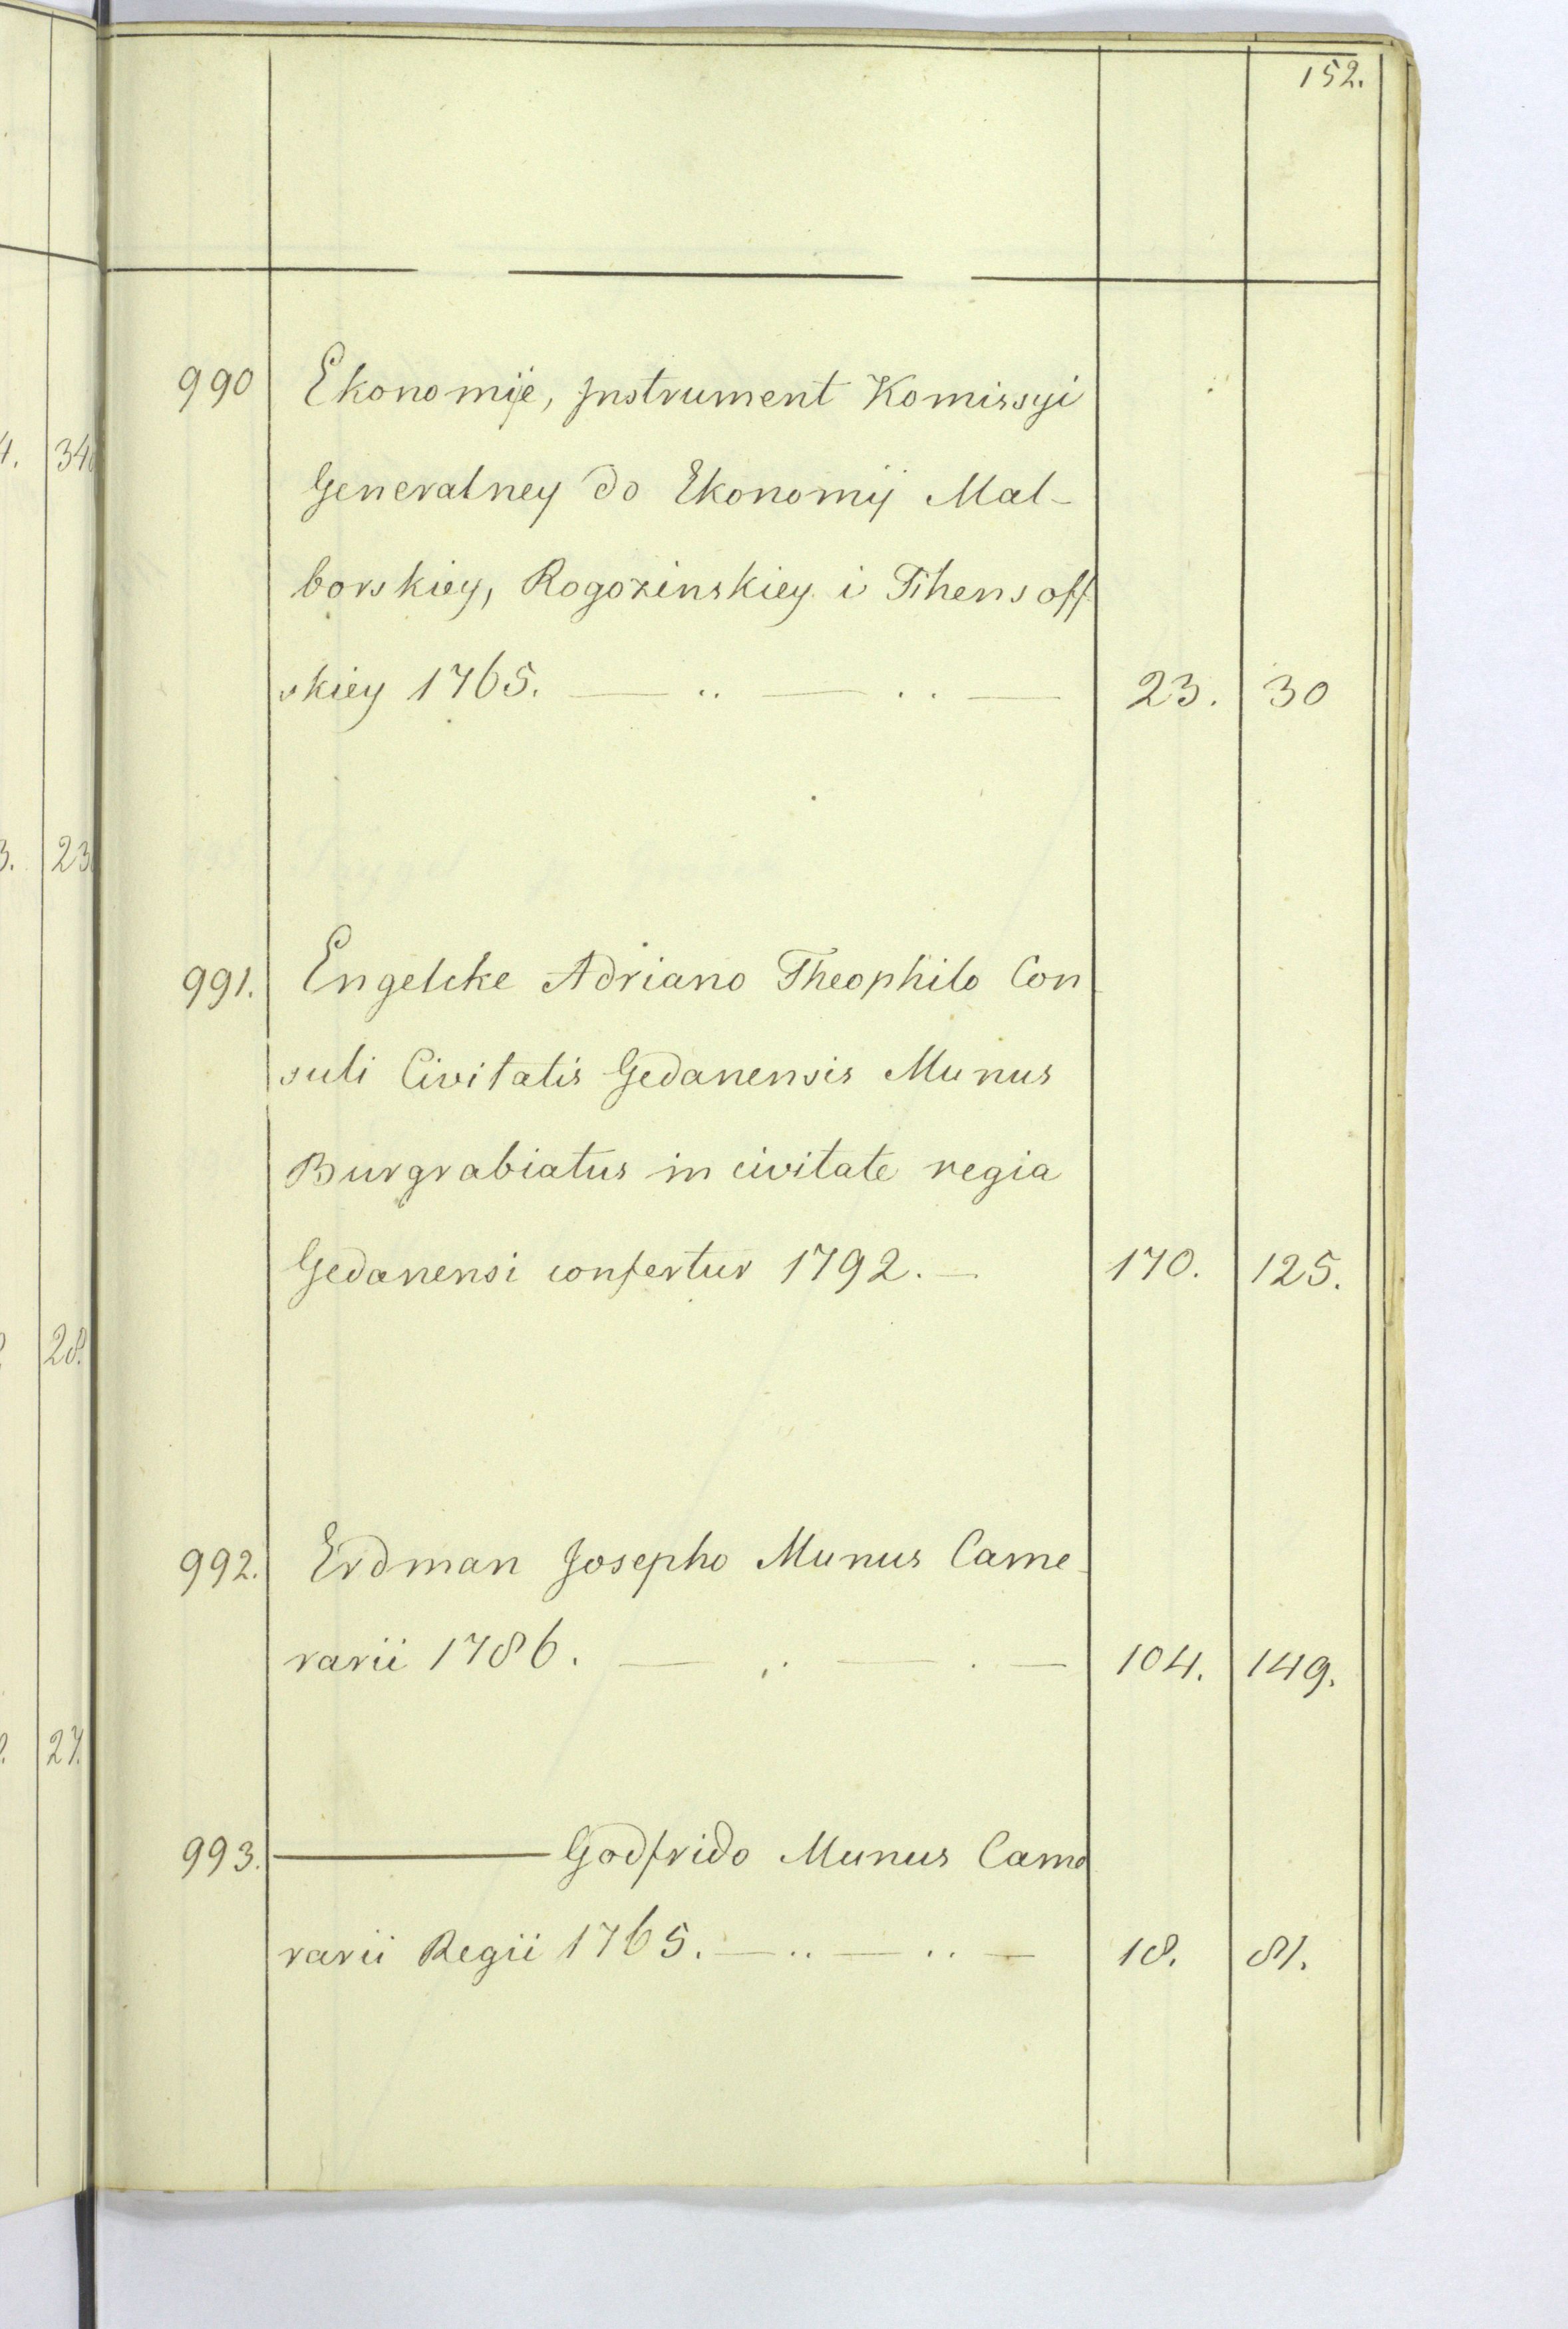 152.
990 Ekonomije, Jnstrument Komissyi
Generalney do Ekonomij Mal-
borskiey, Rogozinskiey i Thensoff
skiey 1765. — .. — .. — 23. 30
991. Engelcke Adriano Theophilo Con
suli Civitatis Gedanensis Munus
Burgrabiatus in civitate regia
Gedanensi confertur 1792. — 170. 125.
992. Erdman Josepho Munus Came-
rarii 1786. — .. — . — 104. 149.
993. — Godfrido Munus Came
rarii Regii 1765. — .. — .. — 18. 81.